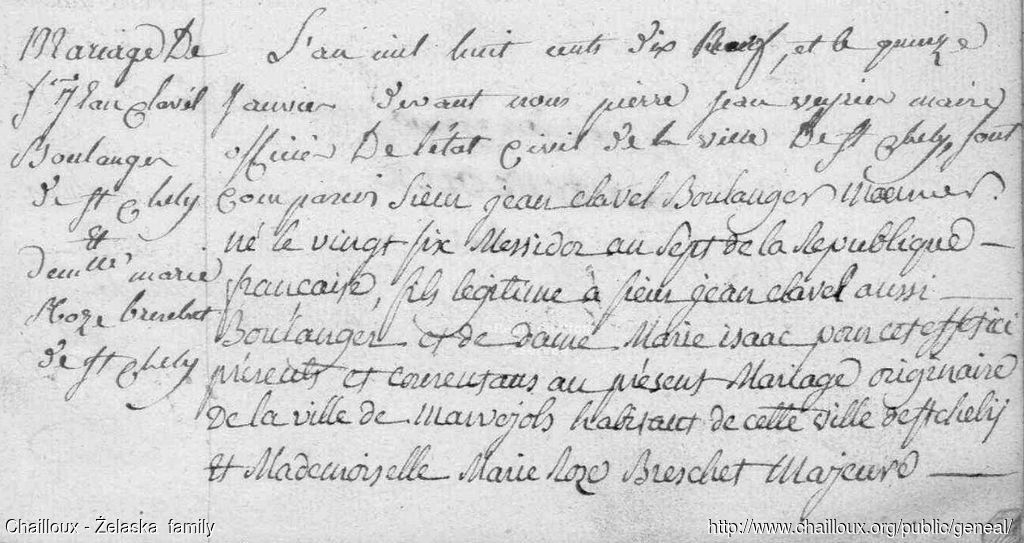 Mariage De
Sr Jean Clavel
Boulanger
de st chely
et
Demlle marie
Roze breschet
de st chely
L'an mil huit cents dix Neuf, et le quinze
Janvier devant nous pierre jean maire
officier De l'état Civil de la ville De st chely, sont
Comparus Sieur jean clavel Boulanger
né le vingt six Messidor an sept de la Republique
francaise, fils légitime à sieur jean clavel aussi
Boulanger et de dame Marie isaac pour cet effet ici
présents et consentans au présent Mariage originaire
De la ville de Marvejols habitant de cette ville de st chely
Et Mademoiselle Marie Roze Breschet Majeure
Chailloux - Żelaska family
http://www.chailloux.org/public/geneal/